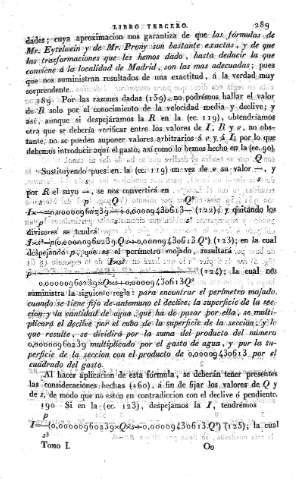 LIBRO TERCERO. 289
dades; cuya aproximacion nos garantiza de que las fórmulas de
Mr. Eytelwein y de Mr. Prony son bastante exactas, y de que
las trasformaciones que les hemos dado, hasta deducir la que
conviene á la localidad de Madrid, son las mas adecuadas; pues
que nos suministran resultados de una exactitud, á la verdad muy
sorprendente.
189. Por las razones dadas (159), no podrémos hallar el valor
de R solo por el conocimiento de la velocidad media y declive; y
así, aunque si despejáramos la R en la (ec. 119), obtendríamos
otra que se deberia verificar entre los valores de I, R y v, no obs-
tante, no se pueden suponer valores arbitrarios á v, y á I, por lo que
debemos introducir aquí el gasto, así como lo hemos hecho en la (ec. 90).
Q
Sustituyendo pues en la (ec. 119) en vez de v su valor —, y
s
por R el suyo —, se nos convertirá en
(122); y quitando los
divisores se tendrá
I×s³=p(0,0000960239×Q×s+0,00009430613×Q²) (123); en la cual
despejando p, que es el perímetro mojado, resultará
I×s³
p= (124); la cual nos
0,0000960239×Q×s+0,00009430613Q²
suministra la siguiente regla: para encontrar el perímetro mojado,
cuando se tiene fijo de antemano el declive, la superficie de la sec-
cion, y la cantidad de agua, que ha de pasar por ella, se multi-
plicará el declive por el cubo de la superficie de la seccion; y lo
que resulte, se dividirá por la suma del producto del número
0,0000960239 multiplicado por el gasto de agua, y por la su-
perficie de la seccion con el producto de 0,0000943613, por el
cuadrado del gasto.
Al hacer aplicacion de esta fórmula, se deberán tener presentes
las consideraciones hechas (160), á fin de fijar los valores de Q y
de s, de modo que no estén en contradiccion con el declive ó pendiente.
190 Si en la (ec. 123), despejamos la I, tendrémos
p
I=—(0,0000960239×Q×s+0,0000943613.Q²) (125); la cual
s³
Tomo I. Oo